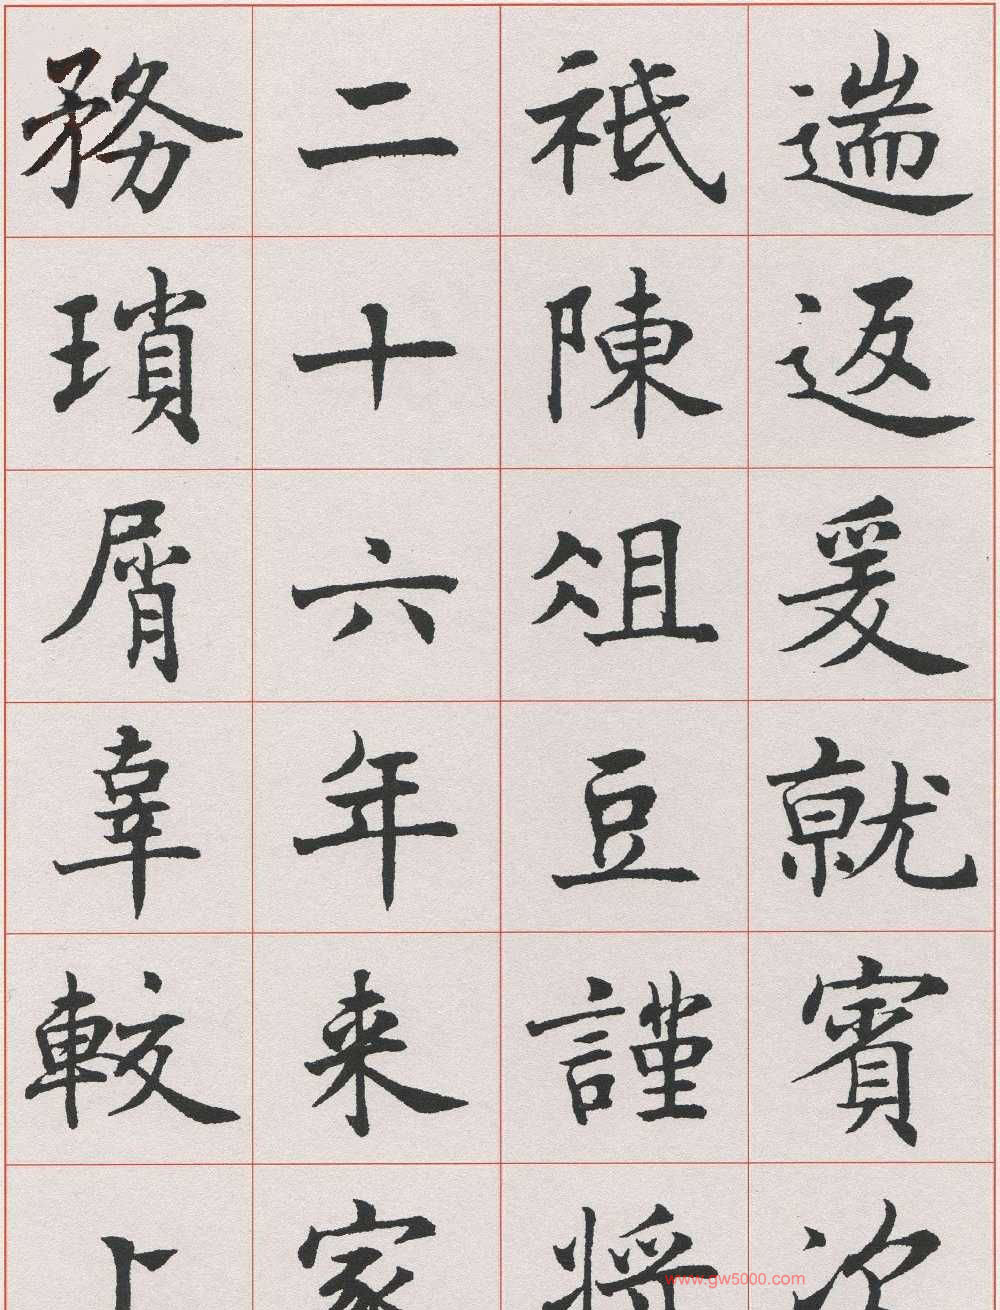 遄返爰就賓次
祇陳俎豆謹將
二十六年来家
務瑣屑辜較上
www.gw5000.com